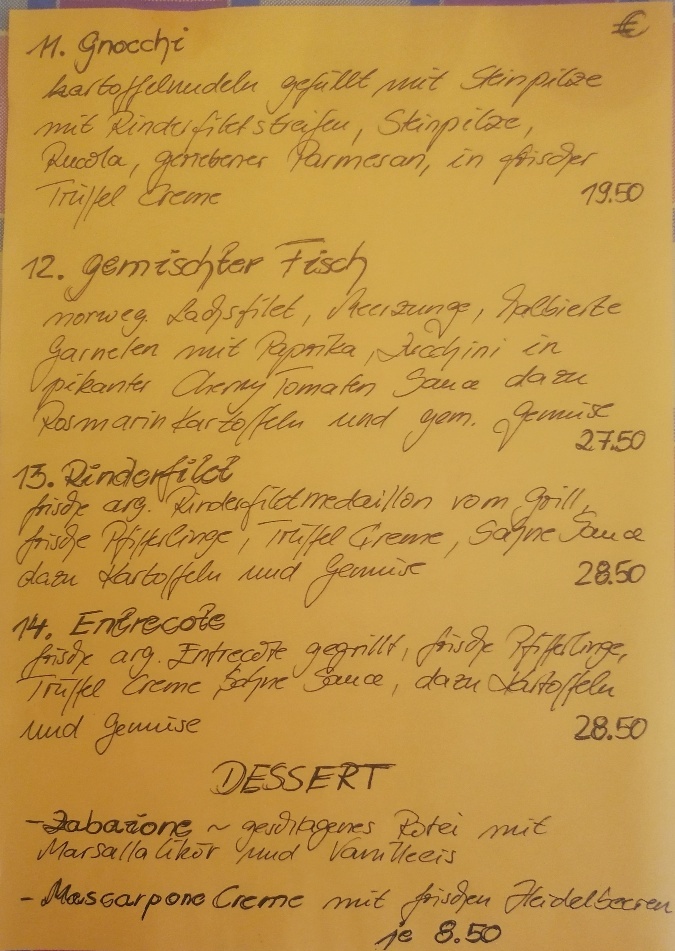 €
11. Gnocchi
Kartoffelnudeln gefüllt mit Steinpilze
mit Rinderfiletstreifen, Steinpilze,
Rucola, geriebener Parmesan, in frischer
Trüffel Creme 19.50
12. gemischter Fisch
norweg. Lachsfilet, Meerzunge, halbierte
Garnelen mit Paprika, Zucchini in
pikanter Cherry Tomaten Sauce dazu
Rosmarin Kartoffeln und gem. Gemüse
27.50
13. Rinderfilet
frische arg. Rinderfiletmedaillon vom Grill,
frische Pfifferlinge, Trüffel Creme, Sahne Sauce
dazu Kartoffeln und Gemüse 28.50
14. Entrecote
frische arg. Entrecôte gegrillt, frische Pfifferlinge,
Trüffel Creme, Sahne Sauce, dazu Kartoffeln
und Gemüse 28.50
DESSERT
- Zabaione ~ geschlagenes Rotei mit
Marsallalikör und Vanilleeis
- Mascarpone Creme mit frischen Heidelbeeren
je 8.50